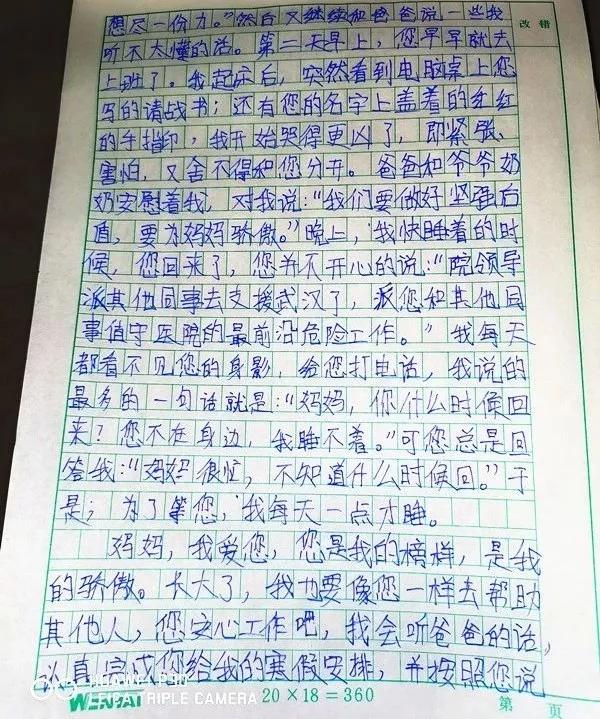 想尽一份力。”然后又继续和爸爸说一些我
改错
听不大懂的话。第二天早上，您早早就去
上班了。我起床后，突然看到电脑桌上您
写的请战书；还有您的名字上盖着的红红
的手指印，我开始哭得更凶了，即紧张、
害怕，又舍不得和您分开。爸爸和爷爷奶
奶安慰着我，对我说：“我们要做好坚强后
盾，要为妈妈骄傲。”晚上，我快睡着的时
候，您回来了，您并不开心的说：“院领导
派其他同事去支援武汉了，派您和其他同
事值守医院的最前沿危险工作。”我每天
都看不见您的身影，给您打电话，我说的
最多的一句话就是：“妈妈，你什么时候回
来？您不在身边，我睡不着。”可您总是回
答我：“妈妈很忙，不知道什么时候回。”于
是；为了等您，我每天一点才睡。
妈妈，我爱您，您是我的榜样，是我
的骄傲。长大了，我也要像您一样去帮助
其他人，您安心工作吧，我会听爸爸的话，
认真完成您给我的寒假安排，并按照您说
LEICA TRIPLE CAMERA
20×18=360
第 页